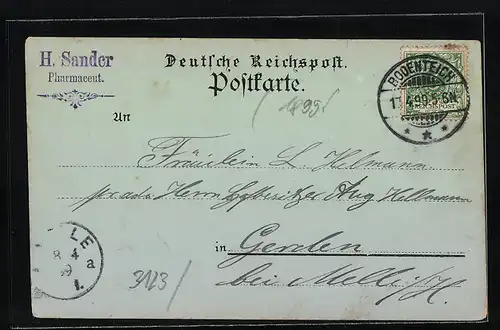 H. Sander
Pharmaceut.
Deutsche Reichspost.
Postkarte.
1899
BODENTEICH
REICHSPOST
An
Fräulein L. Helmann
Herrn Aug Hellmann
in Gerden
bei Melle i/H.
LE
8 4
99 a
3123/